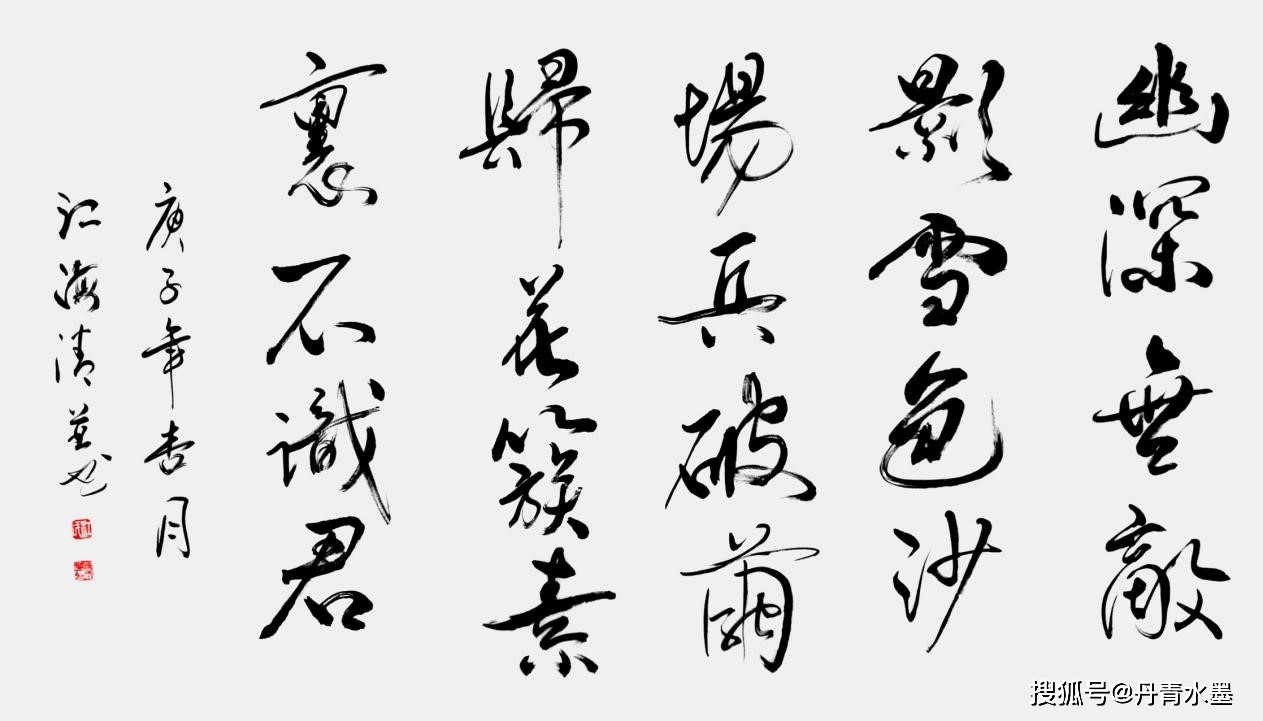 幽深無敵
影雪色沙
場兵破繭
歸花簇素
裹不識君
庚子年杏月
江海清並书
搜狐号@丹青水墨